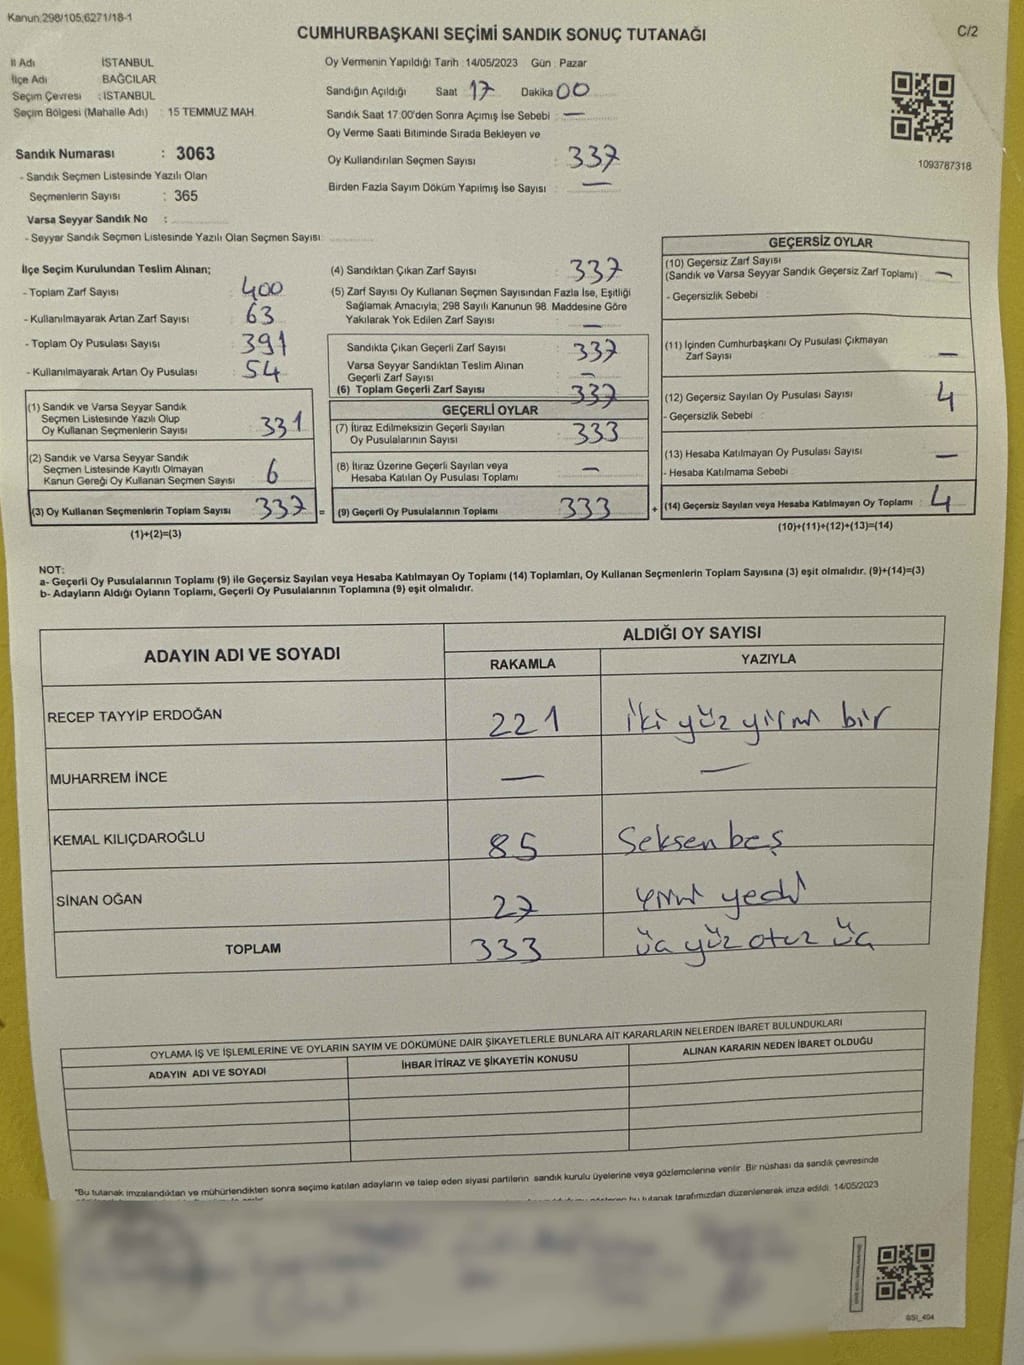 Kanun:298/105,6271/18-1
CUMHURBAŞKANI SEÇİMİ SANDIK SONUÇ TUTANAĞI
C/2
İl Adı : İSTANBUL
İlçe Adı : BAĞCILAR
Seçim Çevresi : İSTANBUL
Seçim Bölgesi (Mahalle Adı) : 15 TEMMUZ MAH.
Sandık Numarası : 3063
- Sandık Seçmen Listesinde Yazılı Olan
Seçmenlerin Sayısı : 365
Varsa Seyyar Sandık No :
- Seyyar Sandık Seçmen Listesinde Yazılı Olan Seçmen Sayısı:
Oy Vermenin Yapıldığı Tarih : 14/05/2023 Gün : Pazar
Sandığın Açıldığı Saat 17 Dakika 00
Sandık Saat 17:00'den Sonra Açılmış İse Sebebi : —
Oy Verme Saati Bitiminde Sırada Bekleyen ve
Oy Kullandırılan Seçmen Sayısı : 337
Birden Fazla Sayım Döküm Yapılmış İse Sayısı : —
1093787318
İlçe Seçim Kurulundan Teslim Alınan;
- Toplam Zarf Sayısı : 400
- Kullanılmayarak Artan Zarf Sayısı : 63
- Toplam Oy Pusulası Sayısı : 391
- Kullanılmayarak Artan Oy Pusulası : 54
(1) Sandık ve Varsa Seyyar Sandık
Seçmen Listesinde Yazılı Olup
Oy Kullanan Seçmenlerin Sayısı : 331
(2) Sandık ve Varsa Seyyar Sandık
Seçmen Listesinde Kayıtlı Olmayan
Kanun Gereği Oy Kullanan Seçmen Sayısı : 6
(3) Oy Kullanan Seçmenlerin Toplam Sayısı : 337 =
(1)+(2)=(3)
(4) Sandıktan Çıkan Zarf Sayısı : 337
(5) Zarf Sayısı Oy Kullanan Seçmen Sayısından Fazla İse, Eşitliği
Sağlamak Amacıyla; 298 Sayılı Kanunun 98. Maddesine Göre
Yakılarak Yok Edilen Zarf Sayısı : —
Sandıkta Çıkan Geçerli Zarf Sayısı : 337
Varsa Seyyar Sandıktan Teslim Alınan
Geçerli Zarf Sayısı : —
(6) Toplam Geçerli Zarf Sayısı : 337
GEÇERLİ OYLAR
(7) İtiraz Edilmeksizin Geçerli Sayılan
Oy Pusulalarının Sayısı : 333
(8) İtiraz Üzerine Geçerli Sayılan veya
Hesaba Katılan Oy Pusulası Toplamı : —
(9) Geçerli Oy Pusulalarının Toplamı : 333 +
GEÇERSİZ OYLAR
(10) Geçersiz Zarf Sayısı
(Sandık ve Varsa Seyyar Sandık Geçersiz Zarf Toplamı) : —
- Geçersizlik Sebebi :
(11) İçinden Cumhurbaşkanı Oy Pusulası Çıkmayan
Zarf Sayısı : —
(12) Geçersiz Sayılan Oy Pusulası Sayısı : 4
- Geçersizlik Sebebi :
(13) Hesaba Katılmayan Oy Pusulası Sayısı : —
- Hesaba Katılmama Sebebi :
(14) Geçersiz Sayılan veya Hesaba Katılmayan Oy Toplamı : 4
(10)+(11)+(12)+(13)=(14)
NOT:
a- Geçerli Oy Pusulalarının Toplamı (9) ile Geçersiz Sayılan veya Hesaba Katılmayan Oy Toplamı (14) Toplamları, Oy Kullanan Seçmenlerin Toplam Sayısına (3) eşit olmalıdır. (9)+(14)=(3)
b- Adayların Aldığı Oyların Toplamı, Geçerli Oy Pusulalarının Toplamına (9) eşit olmalıdır.
ADAYIN ADI VE SOYADI
ALDIĞI OY SAYISI
RAKAMLA YAZIYLA
RECEP TAYYİP ERDOĞAN 221 iki yüz yirmi bir
MUHARREM İNCE — —
KEMAL KILIÇDAROĞLU 85 Seksen beş
SİNAN OĞAN 27 yirmi yedi
TOPLAM 333 üç yüz otuz üç
OYLAMA İŞ VE İŞLEMLERİNE VE OYLARIN SAYIM VE DÖKÜMÜNE DAİR ŞİKAYETLERLE BUNLARA AİT KARARLARIN NELERDEN İBARET BULUNDUKLARI
ADAYIN ADI VE SOYADI İHBAR İTİRAZ VE ŞİKAYETİN KONUSU ALINAN KARARIN NEDEN İBARET OLDUĞU
*Bu tutanak imzalandıktan ve mühürlendikten sonra seçime katılan adayların ve talep eden siyasi partilerin sandık kurulu üyelerine veya gözlemcilerine verilir. Bir nüshası da sandık çevresinde
bu tutanak tarafımızdan düzenlenerek imza edildi. 14/05/2023